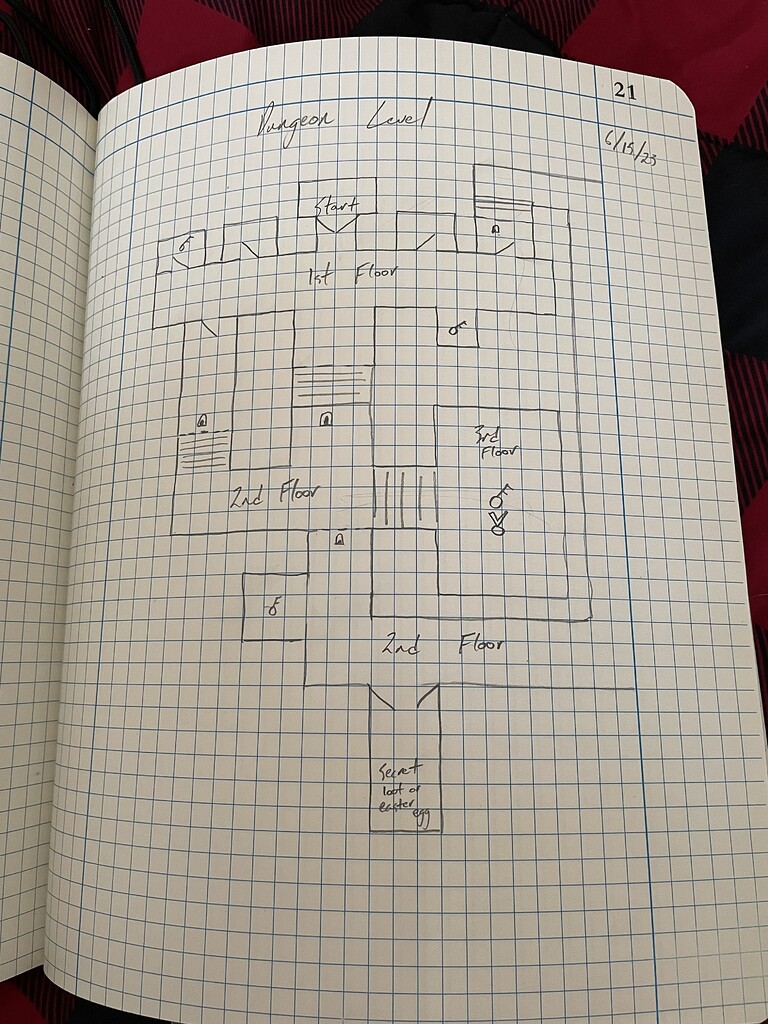 21
Dungeon Level
6/15/23
Start
1st Floor
3rd
Floor
2nd Floor
2nd Floor
Secret
loot or
easter
egg